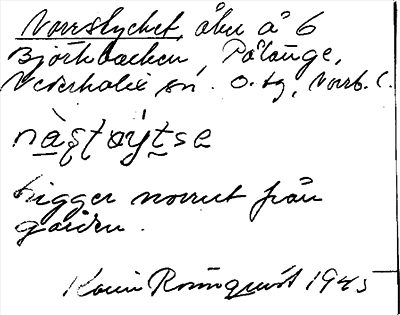 Norrstycket, åker å 6
Björkbacken, Pålänge,
Nederkalix sn. o. tg, Norrb. l.
nàṣt øýtse
ligger norrut från
gården.
Karin Rönnquist 1945